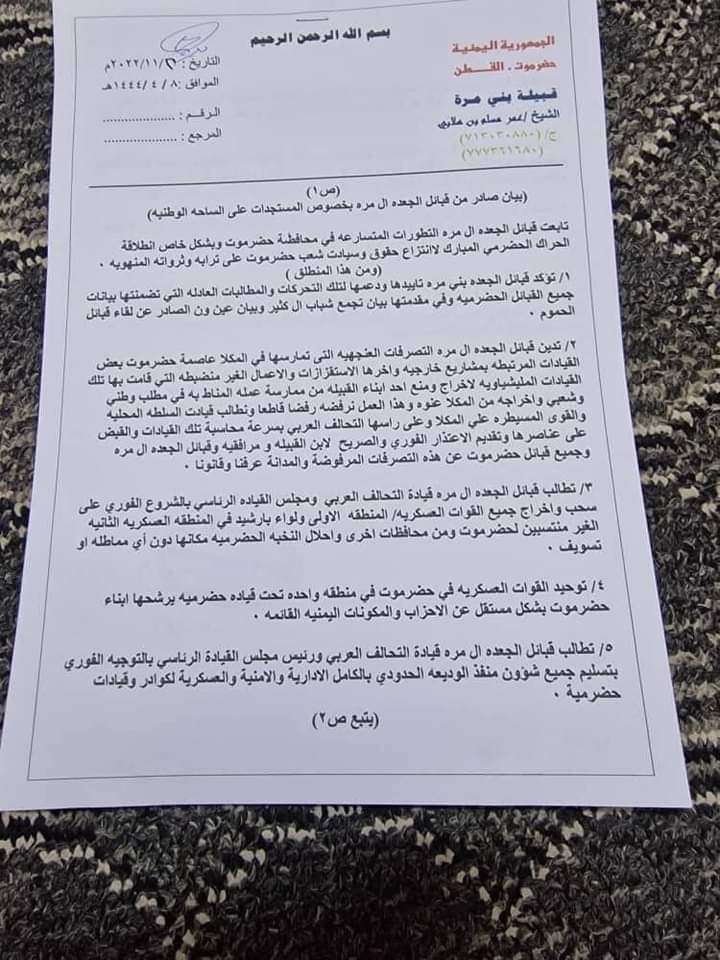 بسم الله الرحمن الرحيم
الجمهورية اليمنية
حضرموت . القطن
قبيلة بني مرة
الشيخ / عمر مسلم بن علابي
ج/ (٧١٣٠٣٠٨٨٠)
(٧٧٧٣٦١٦٨٠)
التاريخ : /٢٠٢٢/١١م
الموافق : ٨ / ٤ / ١٤٤٤هـ
الرقم : ....................
المرجع : ....................
(ص١)
(بيان صادر من قبائل الجعده ال مره بخصوص المستجدات على الساحه الوطنيه)
تابعت قبائل الجعده ال مره التطورات المتسارعه في محافظة حضرموت وبشكل خاص انطلاقة
الحراك الحضرمي المبارك لاانتزاع حقوق وسيادت شعب حضرموت على ترابه وثرواته المنهوبه .
(ومن هذا المنطلق )
١/ تؤكد قبائل الجعده بني مره تاييدها ودعمها لتلك التحركات والمطالبات العادله التي تضمنتها بيانات
جميع القبائل الحضرميه وفي مقدمتها بيان تجمع شباب ال كثير وبيان عين ون الصادر عن لقاء قبائل
الحموم .
٢/ تدين قبائل الجعده ال مره التصرفات العنجهيه التى تمارسها في المكلا عاصمة حضرموت بعض
القيادات المرتبطه بمشاريع خارجيه واخرها الاستفزازات والاعمال الغير منضبطه التي قامت بها تلك
القيادات المليشياويه لاخراج ومنع احد ابناء القبيله من ممارسة عمله المناط به في مطلب وطني
وشعبي واخراجه من المكلا عنوه وهذا العمل نرفضه رفضا قاطعا ونطالب قيادت السلطه المحليه
والقوى المسيطره علي المكلا وعلى راسها التحالف العربي بسرعة محاسبة تلك القيادات والقبض
على عناصرها وتقديم الاعتذار الفوري والصريح لابن القبيله و مرافقيه وقبائل الجعده ال مره
وجميع قبائل حضرموت عن هذه التصرفات المرفوضة والمدانة عرفنا وقانونا .
٣/ تطالب قبائل الجعده ال مره قيادة التحالف العربي ومجلس القياده الرئاسي بالشروع الفوري على
سحب واخراج جميع القوات العسكريه/ المنطقه الاولى ولواء بارشيد في المنطقه العسكريه الثانيه
الغير منتسبين لحضرموت ومن محافظات اخرى واحلال النخبه الحضرميه مكانها دون أي مماطله او
تسويف .
٤/ توحيد القوات العسكريه في حضرموت في منطقه واحده تحت قياده حضرميه يرشحها ابناء
حضرموت بشكل مستقل عن الاحزاب والمكونات اليمنيه القائمه .
٥/ تطالب قبائل الجعده ال مره قيادة التحالف العربي ورئيس مجلس القيادة الرئاسي بالتوجيه الفوري
بتسليم جميع شؤون منفذ الوديعه الحدودي بالكامل الادارية والامنية والعسكرية لكوادر وقيادات
حضرمية .
(يتبع ص٢)